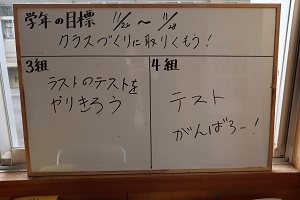 学年の目標 11/24 〜 11/28
クラスづくりに取りくもう!
3組
ラストのテストを
やりきろう
4組
テスト
がんばろー!